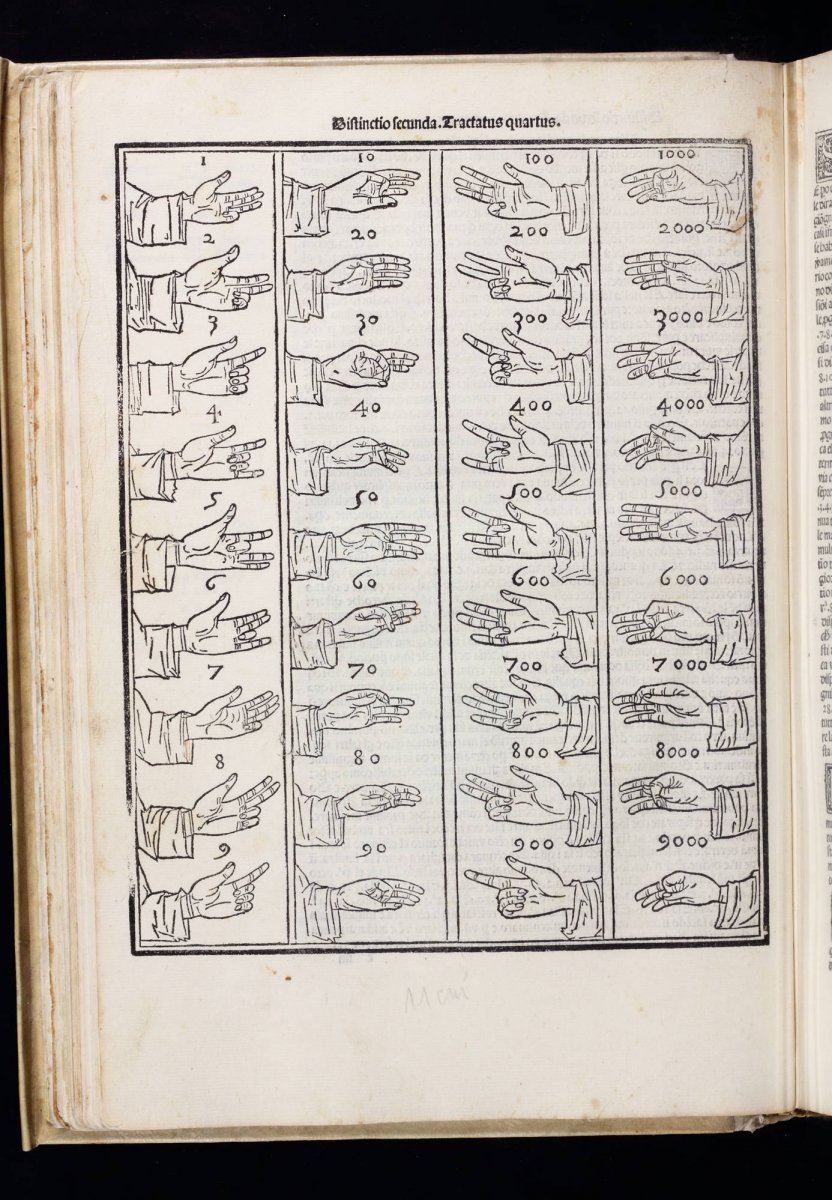 Distinctio secunda. Tractatus quartus.
1 10 100 1000
2 20 200 2000
3 30 300 3000
4 40 400 4000
5 50 500 5000
6 60 600 6000
7 70 700 7000
8 80 800 8000
9 90 900 9000